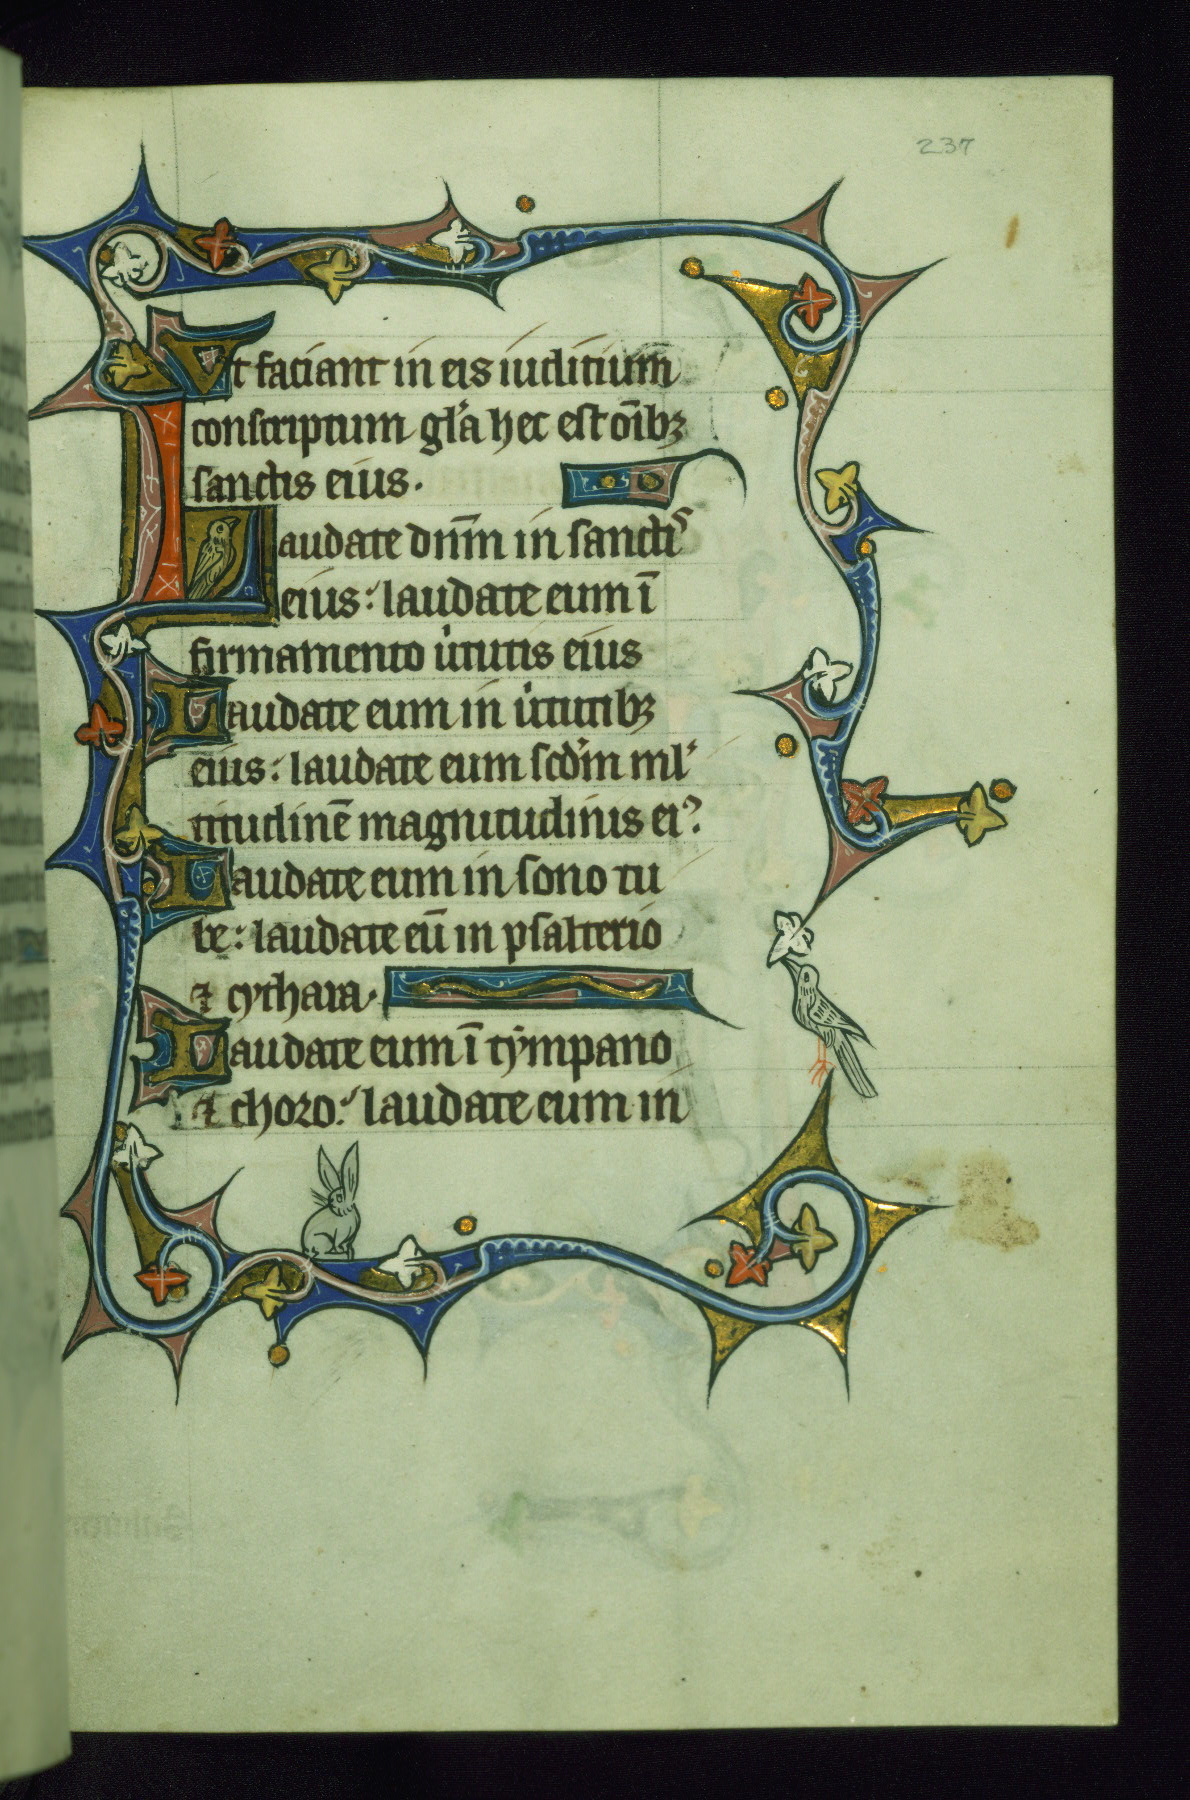 237
Vt faciant in eis iuditium
conscriptum gl'a hec est om̄ibꝫ
sanctis eius.
Laudate dnm̄ in sanctis
eius: laudate eum ī
firmamento u'tutis eius
Laudate eum in u'tutibꝫ
eius: laudate eum scd'm ml'
titudinē magnitudinis ei9.
Laudate eum in sono tu
be: laudate eū in psalterio
⁊ cythara.
Laudate eum ī tympano
⁊ choro: laudate eum in